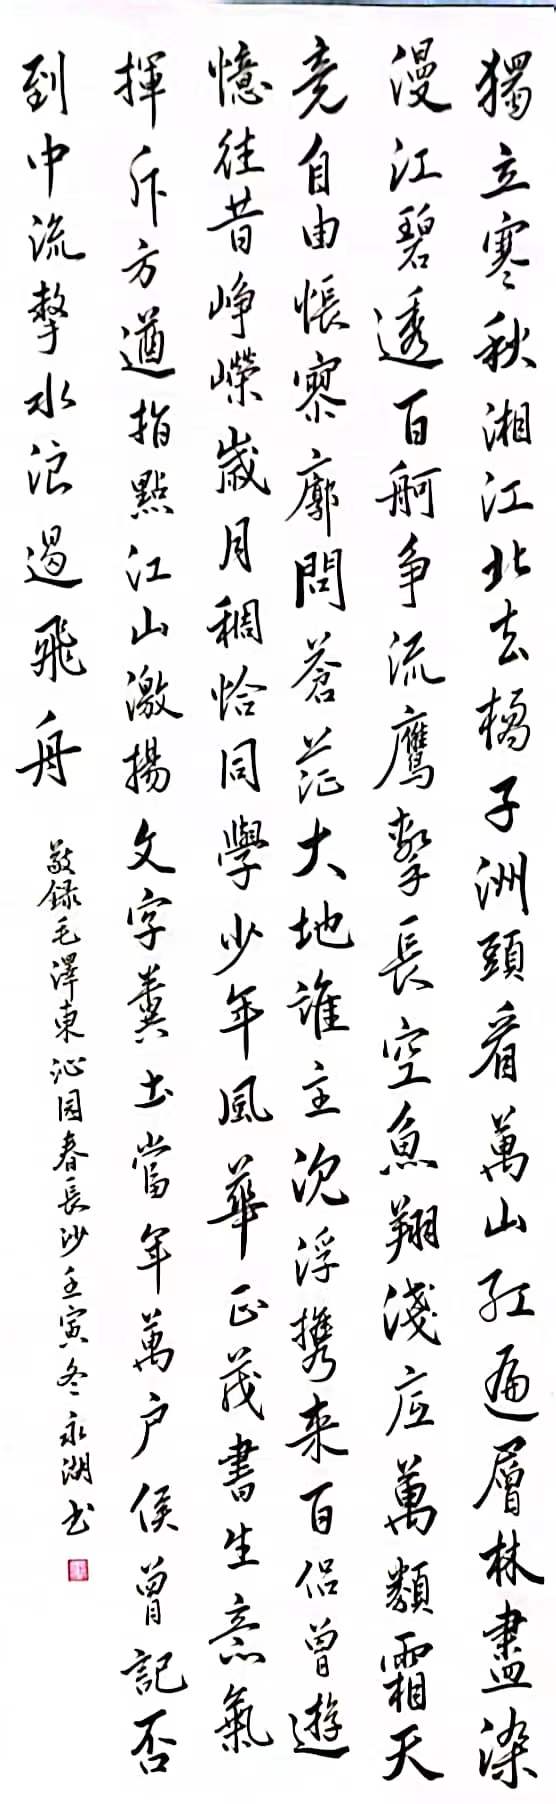 獨立寒秋湘江北去橘子洲頭看萬山紅遍層林盡染
漫江碧透百舸爭流鷹擊長空魚翔淺底萬類霜天
竞自由悵寥廓問蒼茫大地誰主沉浮攜来百侣曾遊
憶往昔崢嶸歲月稠恰同學少年風華正茂書生意氣
揮斥方遒指點江山激揚文字糞土當年萬户侯曾記否
到中流擊水浪遏飛舟
敬録毛澤東沁园春長沙壬寅冬永湖书